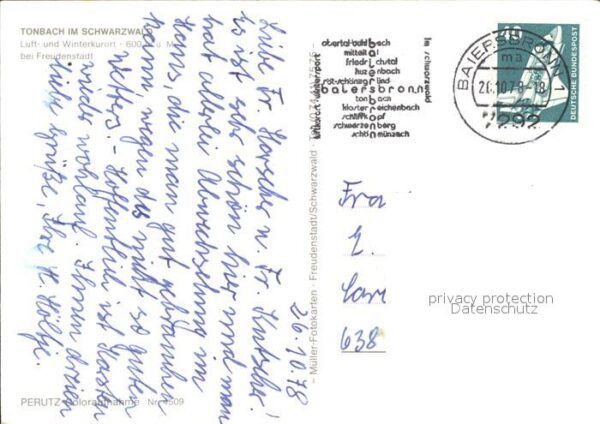 TONBACH IM SCHWARZWALD
Luft- und Winterkurort · 600 ü. M.
bei Freudenstadt
Liebe Fr. u. Fr. Kutscher!
Es ist sehr schön hier und man
hat allerlei Abwechslung im
Haus, die man gut gebrauchen
kann wegen des nicht so guten
Wetters. Hoffentlich ist
wieder wohlauf. Ihnen dreien
Grüße, Ihre H. Höltje.
26.10.78
PERUTZ-Coloraufnahme Nr. 4509
– Müller-Fotokarten · Freudenstadt/Schwarzwald · Tel.
obertal-buhlbach
mitteltal
friedrichstal
huzenbach
röt-schönegründ
baiersbronn
tonbach
klosterreichenbach
schliffkopf
schwarzenberg
schönmünzach
im schwarzwald
luftkurort wintersport
BAIERSBRONN 1
ma
26.10.78-18
7292
DEUTSCHE BUNDESPOST
Fra
E.
Car
638
privacy protection
Datenschutz